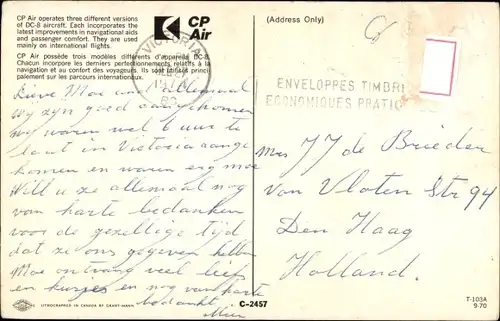 CP Air operates three different versions
of DC-8 aircraft. Each incorporates the
latest improvements in navigational aids
and passenger comfort. They are used
mainly on international flights.
CP Air possède trois modèles différents d'appareils DC-8.
Chacun incorpore les derniers perfectionnements relatifs à la
navigation et au confort des voyageurs. Ils sont utilisés princi-
palement sur les parcours internationaux.
CP
Air
(Address Only)
VICTORIA
ENVELOPPES TIMBR
ECONOMIQUES PRATIQ
Lieve Moe en allemaal
wy zyn goed aangekomen
wy waren wel 6 uur te
laat in Victoria aange
komen en waren erg moe
Will u ze allemaal nog
van harte bedanken
voor de gezellige tijd
dat ze ons gegeven hebben
Moe ontvang veel liefs
en kusjes en nog van harte
bedankt
Mien
Mrs JJ de Brieder
van Vloten Str 94
Den Haag
Holland.
LITHOGRAPHED IN CANADA BY GRANT-MANN
C-2457
T-103A
9-70